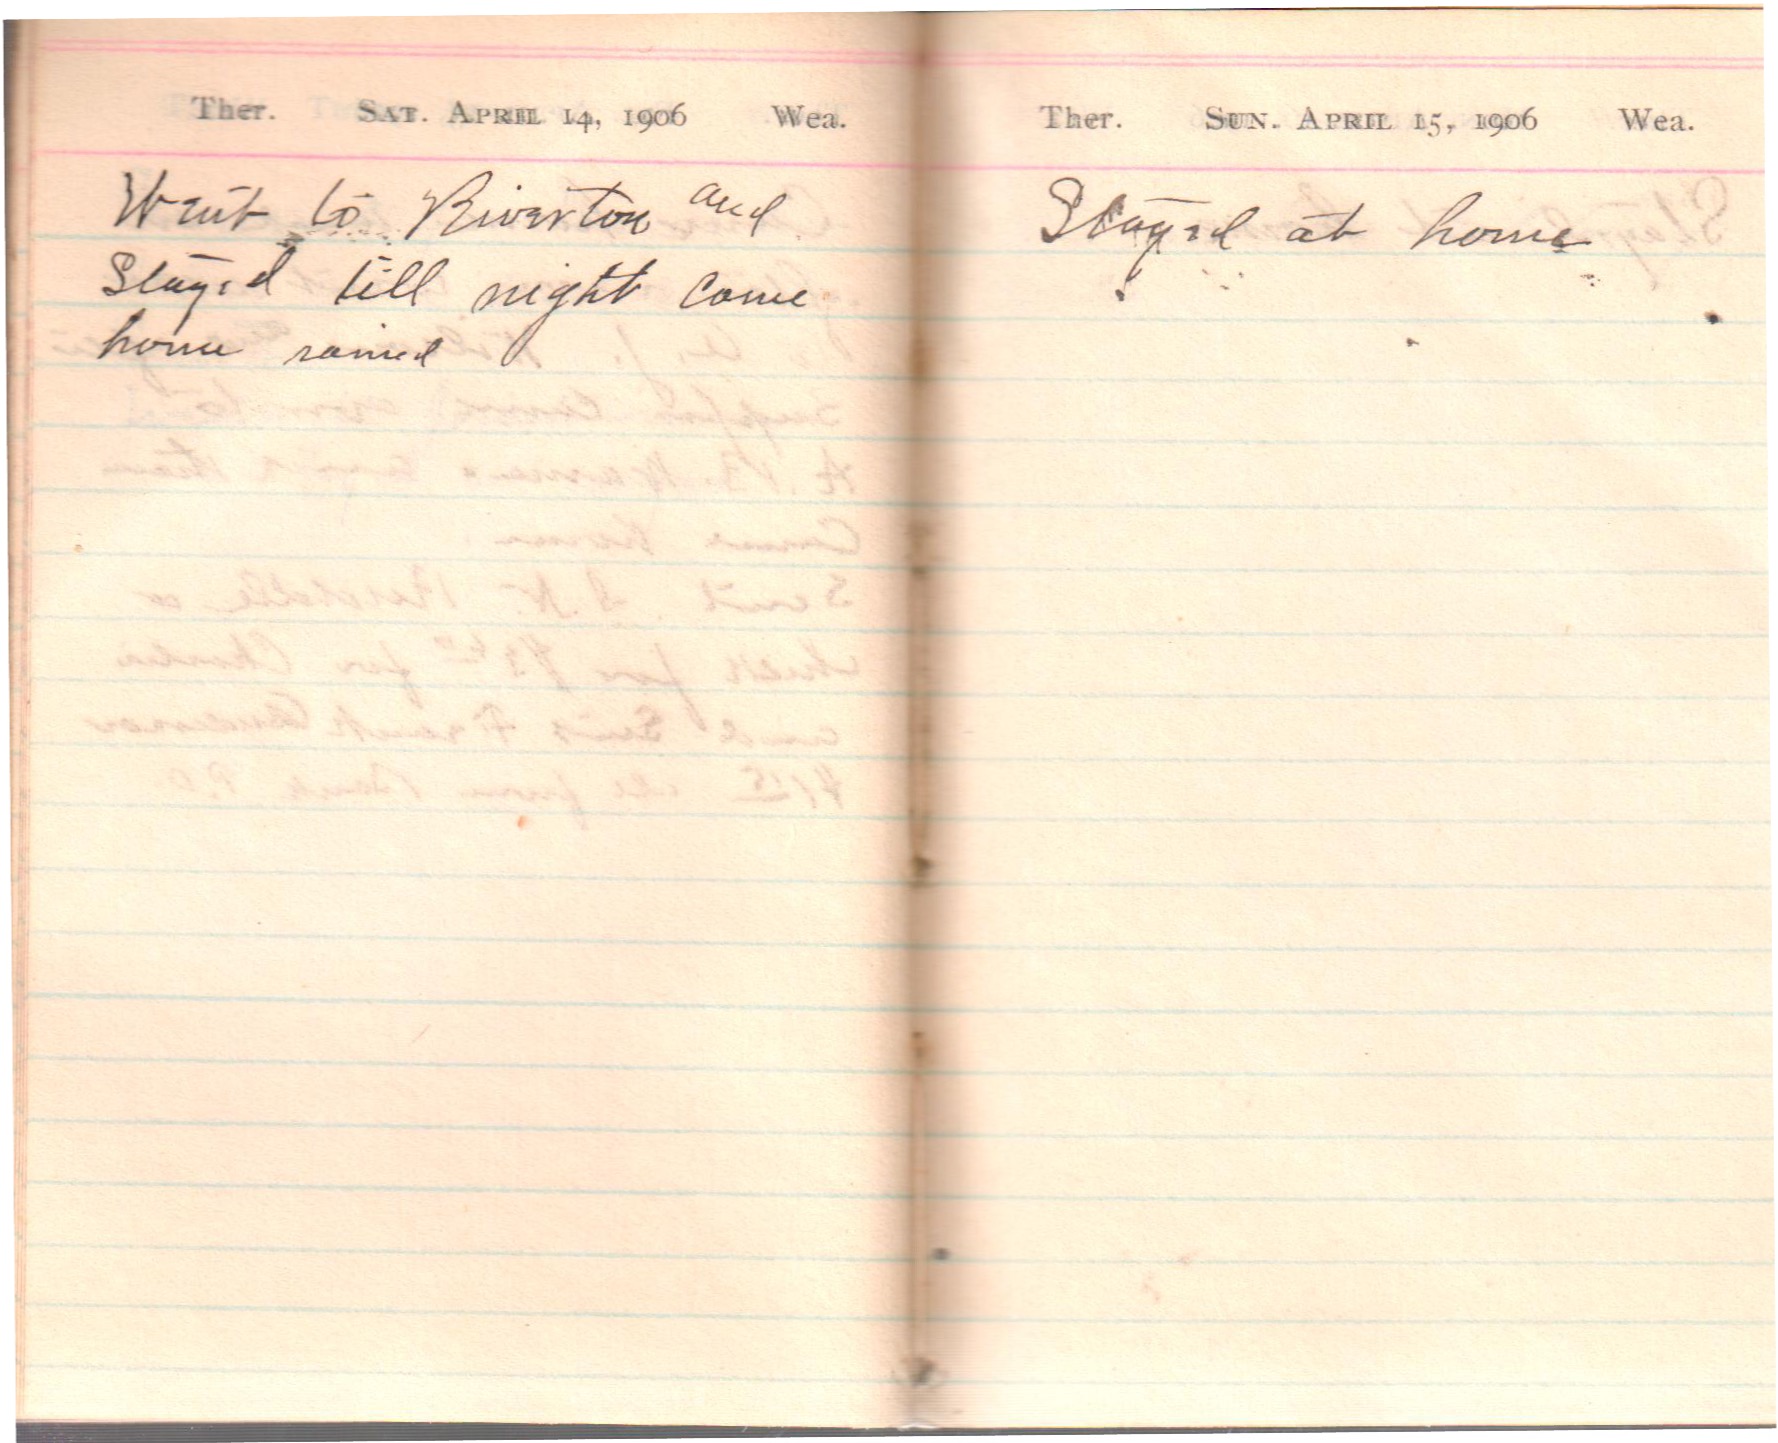 Ther. Sat. April 14, 1906 Wea.
Went to Riverton and
Stayed till night come
home rained
Ther. Sun. April 15, 1906 Wea.
Stayed at home